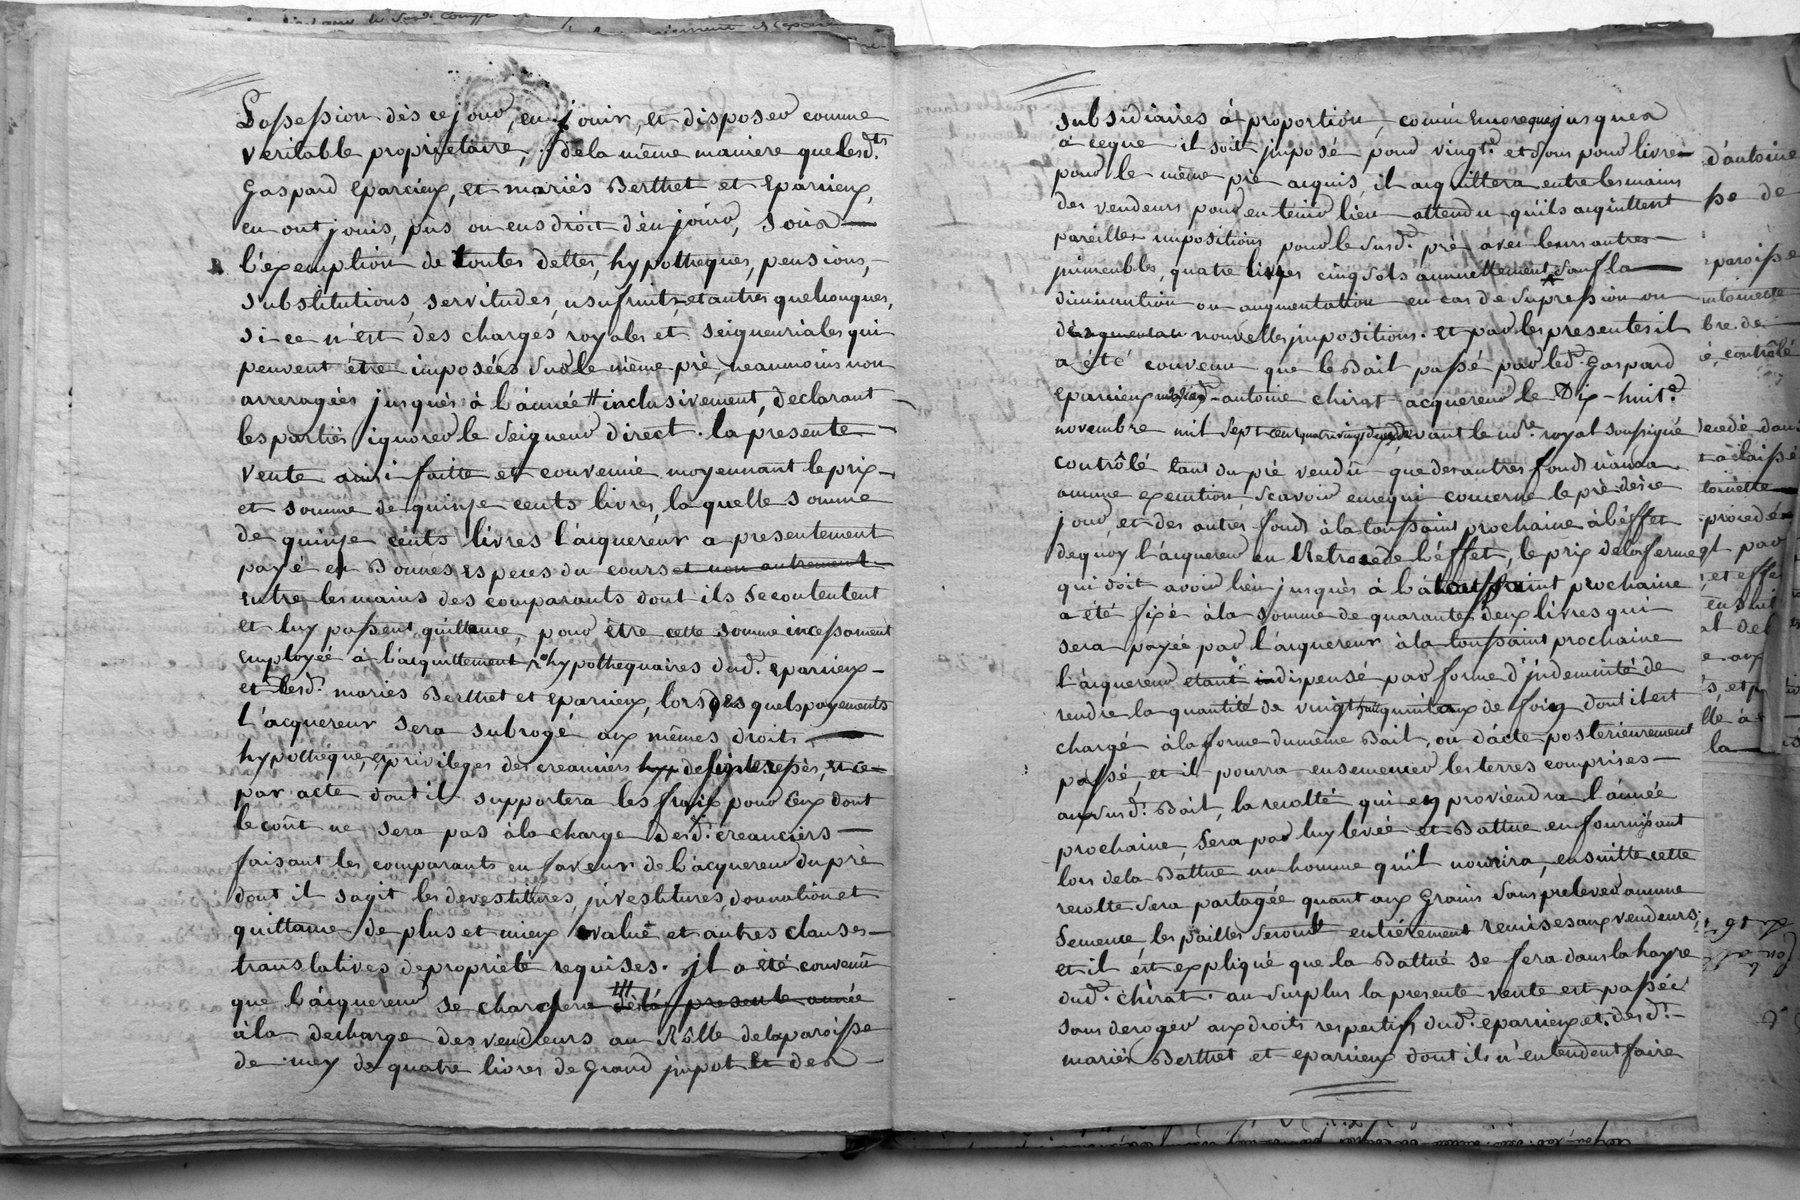 possession dès ce jour, en jouir, et disposer comme
veritable proprietaire, de la même maniere que lesd.ts
Gaspard eparvieux, et mariés Berthet et eparvieux,
en ont jouis, pûs ou eus droit d'en jouir, sous
l'exemption de toutes dettes, hypotheques, pensions,
substitutions, servitudes, usufruits, et autres quelconques,
si ce n'est des charges royales et seigneuriales qui
peuvent être imposées sur le même pré, neanmoins non
arreragées jusques à l'année # inclusivement, declarant
les parties ignorer le seigneur direct. la presente
vente ainsi faitte et convenüe moyennant le prix
et somme de quinze cents livres, laquelle somme
de quinze cents livres l'acquereur a presentement
payé en Bonnes especes du cours et non autrement
entre les mains des comparants dont ils se contentent
et luy passent quittance, pour être cette somme incessament
employée à l'acquittement hypothequaires dud. eparvieux
et lesd. mariés Berthet et eparvieux, lors des quels payements
l'acquereur sera subrogé aux mêmes droits
hypotheque, et privileges des creanciers desinteressés, et ce
par acte dont il supportera les frais pour ceux dont
le coût ne sera pas à la charge desd. creanciers
faisant les comparants en faveur de l'acquereur du pré
dont il sagit les devestitures, investitures, donnation et
quittance de plus et mieux value et autres clauses
translatives de propriété requises. il a été convenû
que l'acquereur se chargera de la presente année
à la decharge des vendeurs au Rôlle de la paroisse
de mey de quatre livres de Grand impot et des
subsidiaires à proportion, comm' encore jusques
à ceque il soit imposé pour vingt.e et sous pour livre
pour le même pré acquis, il acquittera entre les mains
des vendeurs pour en tenir lieu attendu qu'ils acquittent
pareilles impositions pour le susd. pré avec leurs autres
immeubles, quatre livres cinq sols annuellement sauf la
diminution ou augmentation en cas de supression ou
d'augmentat. nouvelles impositions. et par les presentes il
a été convenu que le Bail passé par led. Gaspard
eparvieux aud. antoine chirat acquereur le Dix-huit.e
novembre mil sept cent quatre vingt devant le no.re royal soussigné
contrôlé tant du pré vendû que des autres fonds n'aura
aucune execution sçavoir en ce qui concerne le pré dès ce
jour et des autres fonds à la toussaint prochaine à l'éffet
dequoy l'acquereur en Retrocede l'éffet, le prix de la ferme
qui doit avoir lieu jusques à la toussaint prochaine
a été fixé à la somme de quarante deux livres qui
sera payée par l'acquereur à la toussaint prochaine
l'acquereur etant indispensé par forme d'indemnité de
rendre la quantité de vingt quintaux de foin dont il est
chargé à la forme du même Bail, ou d'acte posterieurement
passé, et il pourra ensemencer les terres comprises
au susd. Bail, la recolte qui en proviendra l'année
prochaine, sera par luy levée et Battue en fournissant
lors de la Battue un homme qu'il nourrira, ensuitte cette
recolte sera partagée quant aux Grains sans prelever aucune
semence, les pailles seront entiérement remises aux vendeurs,
et il est expliqué que la Battue se fera dans la hayre
dud. chirat. au surplus la presente vente est passée
sans deroger aux droits respectifs dud. eparvieux et desd.
mariés Berthet et eparvieux dont ils n'entendent faire
d'antoine
paroisse
contrôlé